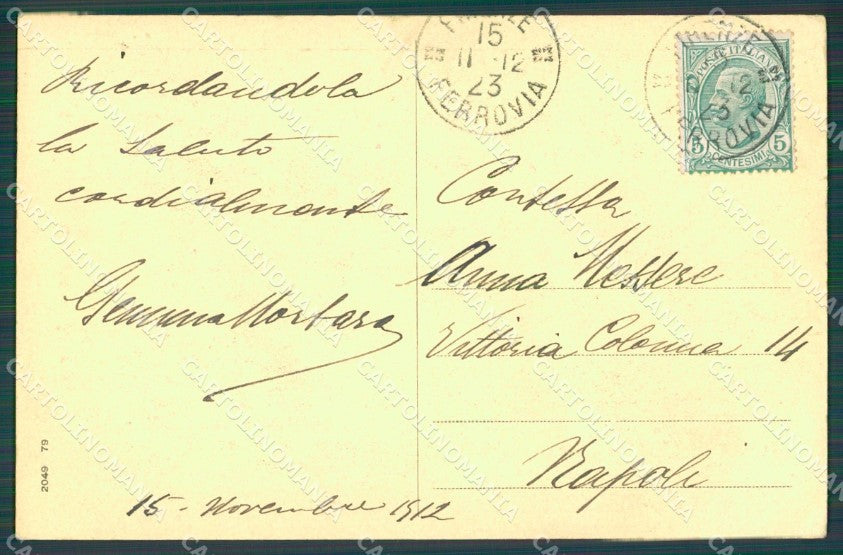 Ricordandola
la saluto
cordialmente
Gemma Mortara
15 - Novembre 1912
2049 79
FIRENZE
15
11-12
23
FERROVIA
FIRENZE
12
23
FERROVIA
POSTE ITALIANE
5 5
CENTESIMI
Contessa
Anna Messere
Vittoria Colonna 14
Napoli
CARTOLINOMANIA